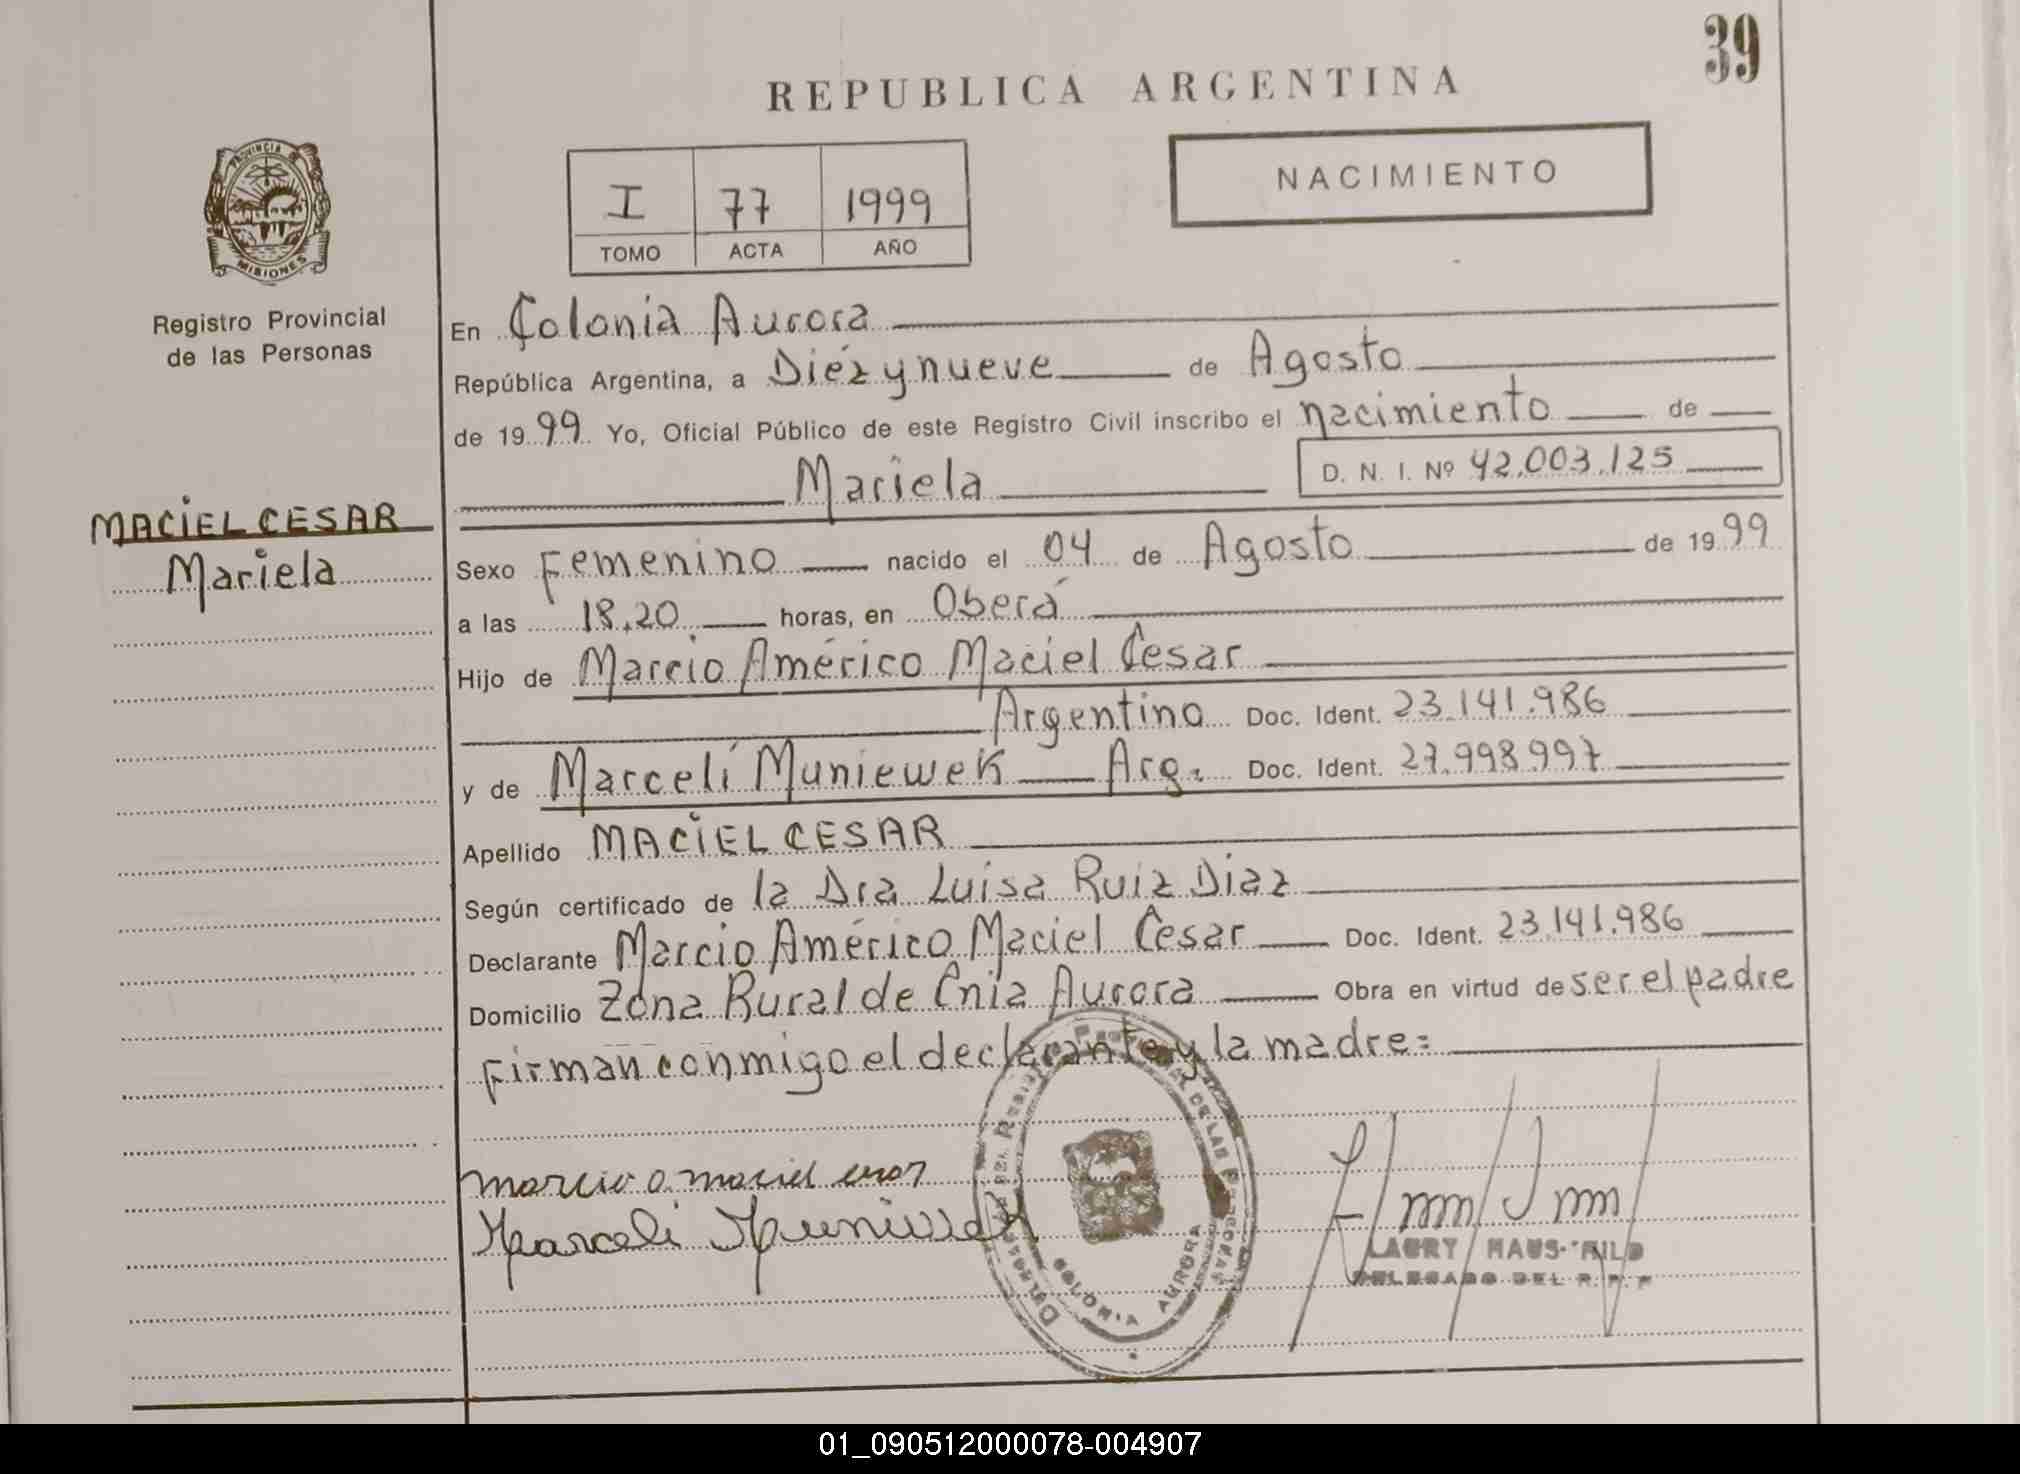 39
REPUBLICA ARGENTINA
NACIMIENTO
I 77 1999
TOMO ACTA AÑO
PROVINCIA DE
MISIONES
Registro Provincial
de las Personas
MACIEL CESAR
Mariela
En Colonia Aurora
República Argentina, a Diéz y nueve de Agosto
de 1999 Yo, Oficial Público de este Registro Civil inscribo el nacimiento de
Mariela D. N. I. Nº 42.003.125
Sexo Femenino nacido el 04 de Agosto de 1999
a las 18,20 horas, en Oberá
Hijo de Marcio Américo Maciel Cesar
Argentino Doc. Ident. 23.141.986
y de Marcelí Muniewek Arg. Doc. Ident. 27.998.997
Apellido MACIEL CESAR
Según certificado de la Dra Luisa Ruiz Diaz
Declarante Marcio Américo Maciel Cesar Doc. Ident. 23.141.986
Domicilio Zona Rural de Cnia Aurora Obra en virtud de ser el padre
Firman conmigo el declarante y la madre=
marcio a. maciel cesar
Marceli Muniewek
COLONIA AURORA
DELEGADO DEL R. P. P
01_090512000078-004907